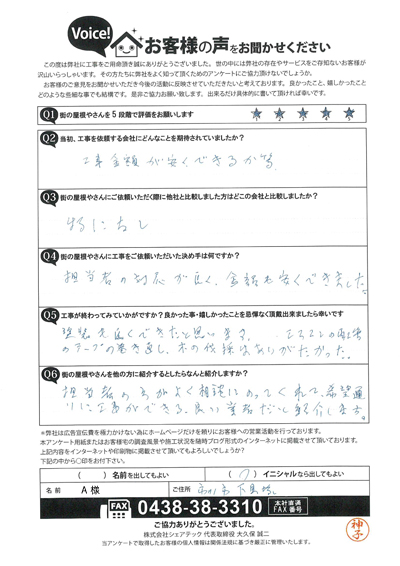 Voice!
お客様の声をお聞かせください
この度は弊社に工事をご用命頂き誠にありがとうございました。世の中には弊社の存在やサービスをご存知ないお客様が
沢山いらっしゃいます。その方たちに弊社をよく知って頂くためのアンケートにご協力頂けないでしょうか。
お客様のご意見をお聞かせいただき今後の活動に反映させていただきたいと考えております。良かったこと、嬉しかったこと
どのような些細な事でも結構です。是非ご協力お願い致します。出来るだけ具体的に書いて頂ければ幸いです。
Q1 街の屋根やさんを5段階で評価をお願いします
1 2 3 4 5
Q2 当初、工事を依頼する会社にどんなことを期待されていましたか?
工事金額が安くできるか等
Q3 街の屋根やさんにご依頼いただく際に他社と比較しました方はどこの会社と比較しましたか?
特になし
Q4 街の屋根やさんに工事をご依頼いただいた決め手は何ですか?
担当者の対応が良く、金額も安くできました。
Q5 工事が終わってみていかがですか?良かった事・嬉しかったことを忌憚なく頂戴出来ましたら幸いです
塗装も良くできたと思います。
のテープの巻き直し、木の伐採はありがたかった。
Q6 街の屋根やさんを他の方に紹介するとしたらなんと紹介しますか?
担当者の方がよく相談にのってくれて、希望通
りに工事ができる、良い業者だと紹介します。
※弊社は広告宣伝費を極力かけない為にホームページだけを頼りにお客様への営業活動を行っております。
本アンケート用紙またはお客様宅の調査風景や施工状況を随時ブログ形式のインターネットに掲載させて頂いております。
上記内容をインターネットや印刷物に掲載させて頂いてもよろしいでしょうか?
下記の中から○印をお付下さい。
( )名前を出してもよい ( )イニシャルなら出してもよい
名前 A様 ご住所
FAX 0438-38-3310 本社直通 FAX番号
ご協力ありがとうございました。
株式会社シェアテック 代表取締役 大久保 誠二
当アンケートで取得したお客様の個人情報は関係法規に基づき厳正に管理いたします。
神子